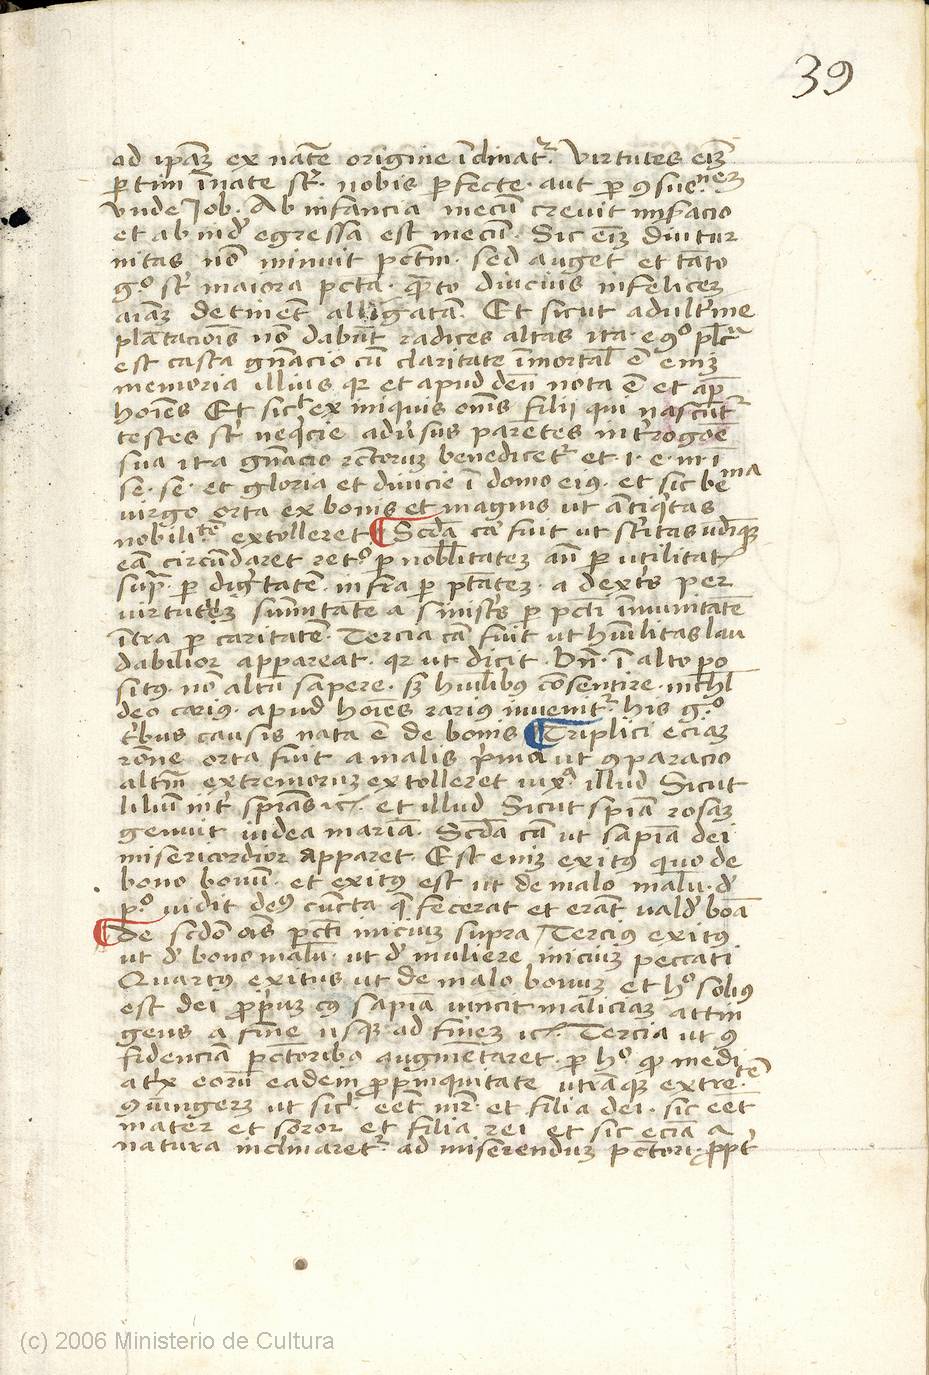 39
ad ipãz ex nate origine ĩclinat᷑. Virtutes eiz
p tim ĩnate st᷑. nobis pfecte. aut p ꝯsue.nez
Vnde Job. Ab infancia mecũ crevit miẜacio
et ab ind egressa est mecũ. Sic eiz diutur
nitas nõ minuit pctm. sed auget et tãto
g.o st᷑ maiora pctã. qto diucius infelicez
aiaz detinent alligatã. Et sicut adulterine
plãtaciois nõ dabũt radices altas ita. eꝯo
est casta gñacio cũ claritate ĩmortał ẽ eniz
memoria illius qr et apud deũ nota ẽ et ap
hoĩes Et sict ex iniquis oms filii qui nascũt᷑
testes st᷑ neq̃cie adũsus paretes int᷑rogoẽ
sua ita gñacio rctoruz benedicet᷑ et. i. e. m i
se. se. et gloria et diuicie ĩ domo eiꝰ. et sic be ma
virgo orta ex bonis et magnis ut ãtiq̃tas
nobilitẽ extolleret Scda cã fuit ut sc̃itas udiqz
eã circũdaret ret.o p nobłitatez añ p utilitat
sup. p dig̃tatẽ. infra p ptatez. a dext᷑s per
virtutez sũmitatẽ a sinist᷑s p pcti ĩmunitatẽ
ĩtra p caritatẽ. Tercia cã fuit ut hũilitas lau
dabilior appareat. qr ut dicit. Bñ. ĩ alto po
situꝰ. nõ altũ sapere. sz huilibꝰ consentire. nichł
deo cariꝰ. apud hoĩes rariꝰ inuenit᷑. his g.o
t᷑bus causis nata ẽ de bonis Triplici eciaz
rõne orta fuit a malis p̃ma ut ꝯparacio
altm̃ extremoruz extolleret uixa illud Sicut
liliũ int᷑ spinãs ic. et illud Sicut spinã rosaz
genuit iudea mariã. Scda cã ut sapiã dei
misericordior apparet. Est eniz exitꝰ quo de
bono bonũ. et exitꝰ est ut de malo malũ. d
p.o uidit deꝰ cũcta q̃ fecerat et erãt uald boã
De scdo ois pcti iniciuz supra Terciꝰ exitꝰ
ut d bono malũ. ut d muliere iniciuz peccati
Quartꝰ exitus ut de malo bonuz et ho soliꝰ
est dei p̃priuz cꝰ sapiã uincit maliciaz attin
gens a fine usqz ad finez ic. Tercia ut ꝯ
fidenciã pctoribꝰ augmẽtaret. p ho qp medi
atx eorũ eadem p̃pinquitate utrãqz extre.tẽ
ꝯiũngerz ut sicł. eet mr̃ et filia dei. sic eet
mater et soror et filia rei et sic eciã a
natura inclinaret᷑. ad miserenduz pctori. ppt᷑
(c) 2006 Ministerio de Cultura